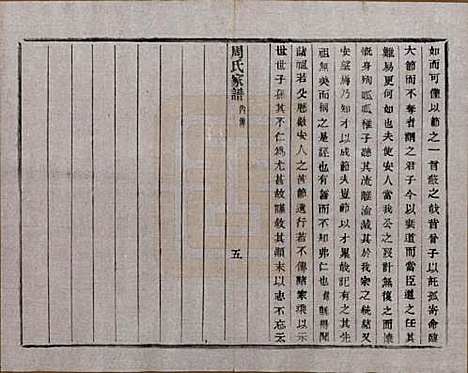 如而可僅以節之一言蔽之哉昔曾子以託孤寄命臨
大節而不奪者謂之君子今以妻道而當臣道之任其
難易更何如也夫使安人當我公之歿計無復之而
慨身殉呱呱稚子聽其流離渝滅其於我家之統緒又
安望焉乃知以死成節夫豈節以才果故有其才先
祖無美而稱之是誣也有而不知弗仁也
諸祖若父歷敘安人之苦節遺行若不傳諸家乘以示
世世子孫其不仁為尤甚故謹敘其顛末以志不忘云
周氏家譜 內傳 五